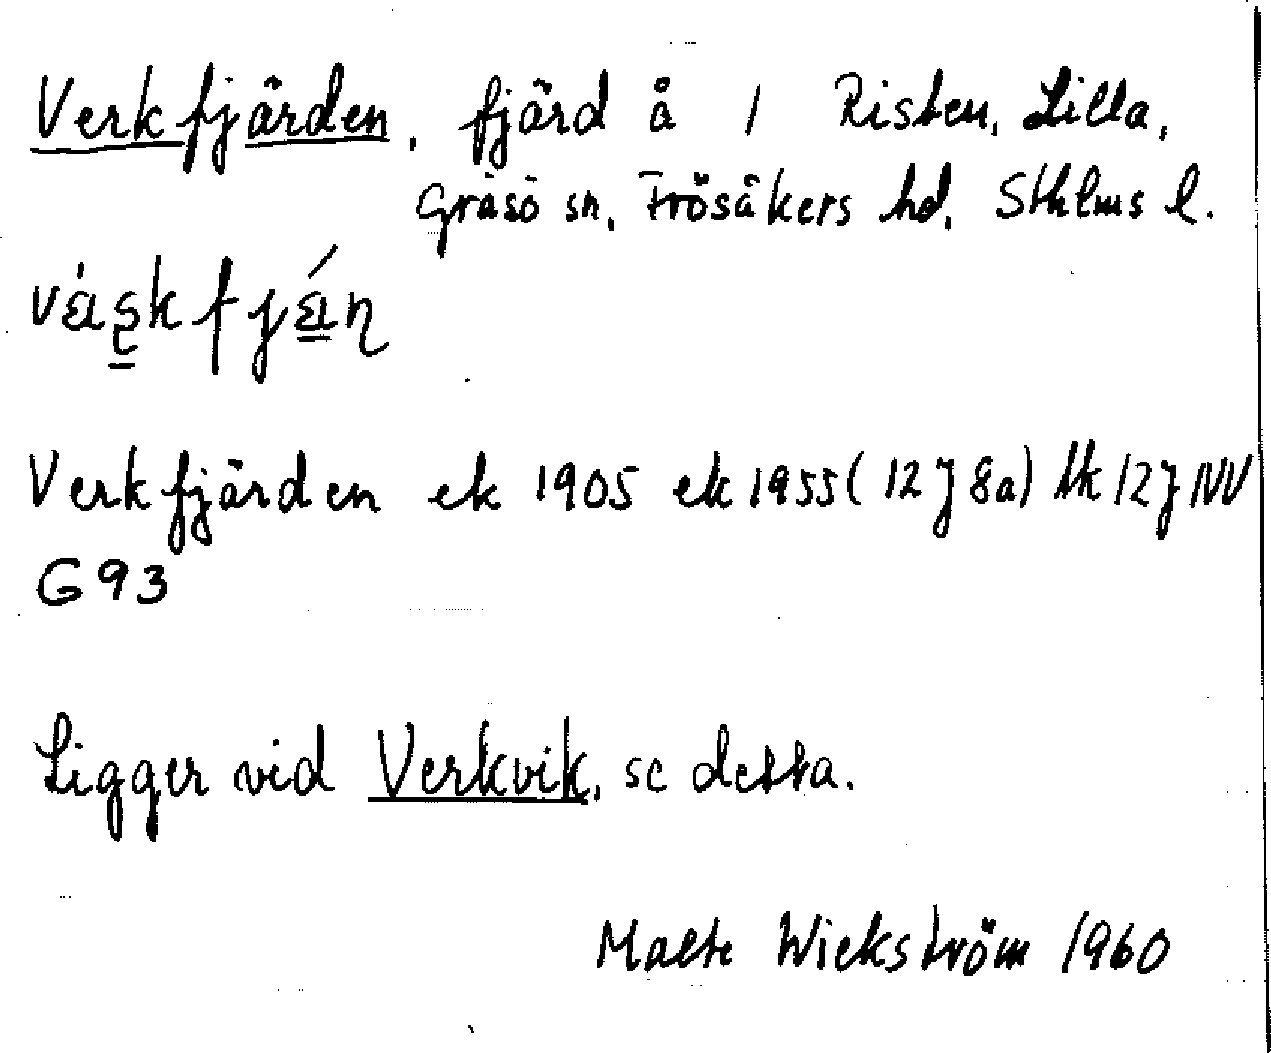 Verkfjärden, fjärd å 1 Risten, Lilla,
Gräsö sn, Frösåkers hd, Sthlms l.
Verkfjärden ek 1905 ek 1955 (12J8a) tk 12J NV
G93
Ligger vid Verkvik, se detta.
Malte Wickström 1960